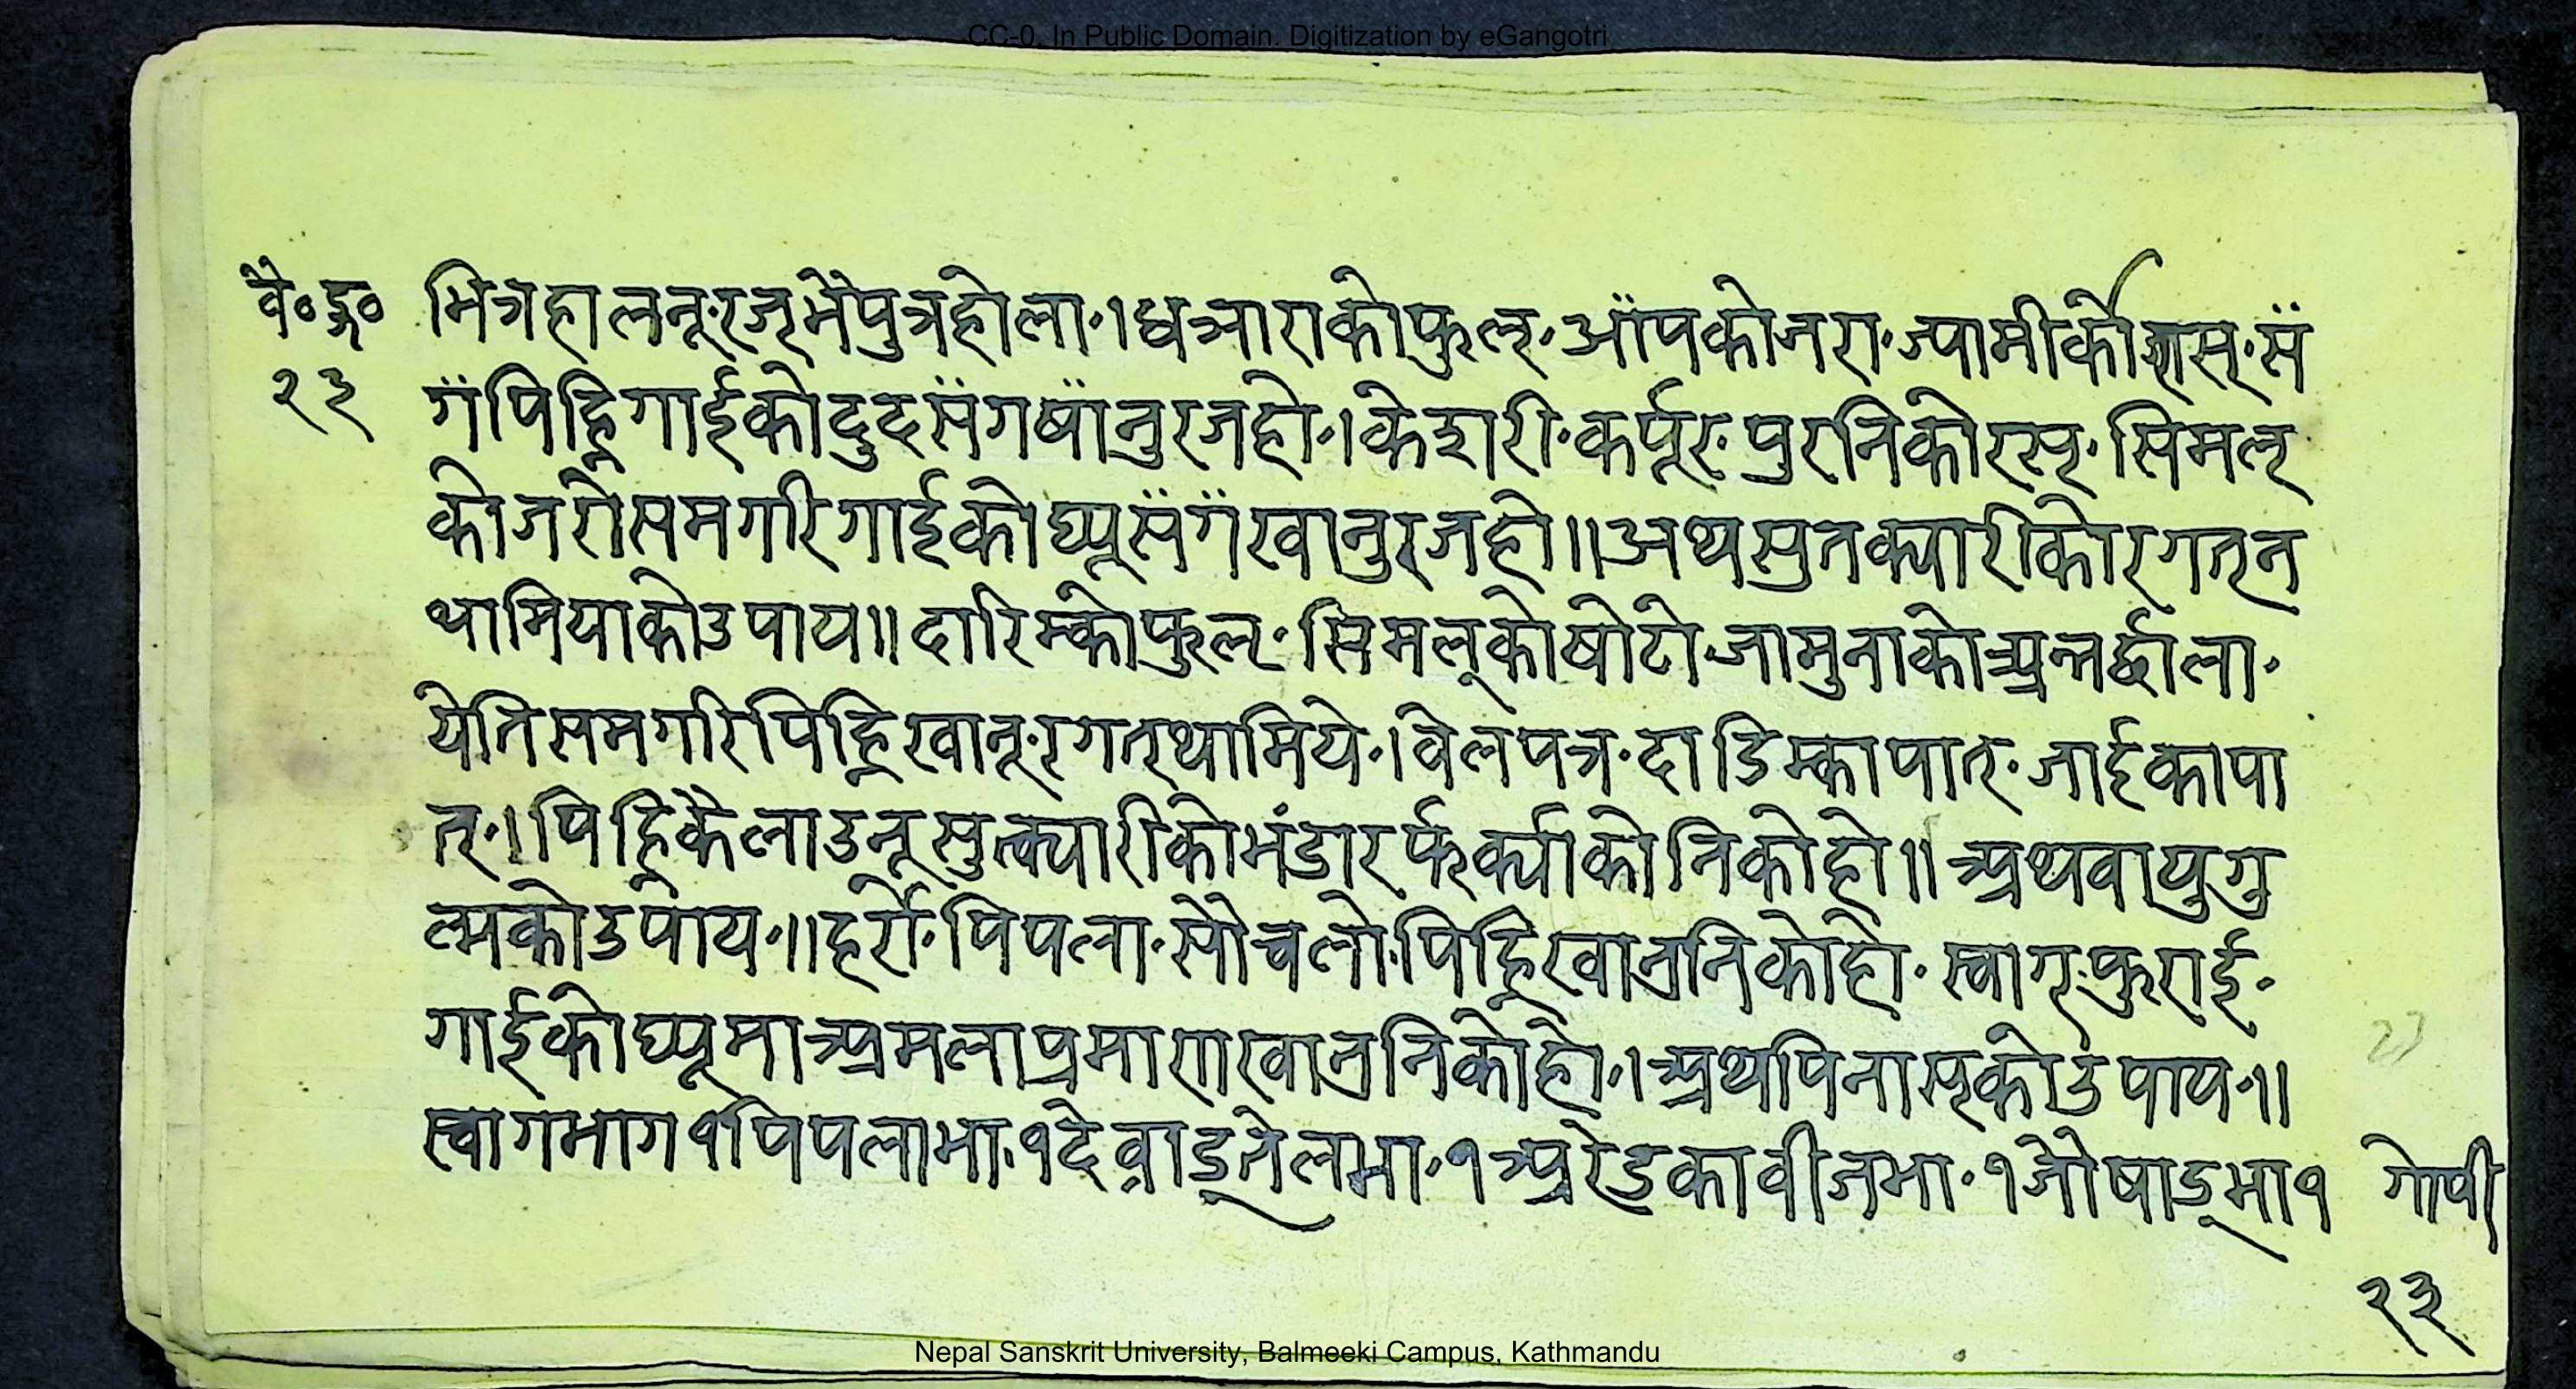 CC-0. In Public Domain. Digitization by eGangotri
वै॰ द्र॰ भित्रहालनू॰रजर्मैपुत्रहोला॰।धत्राराकोफुल्॰आँपकोजरा॰ज्यामीर्को रस्॰सँ
२३ गँपिह्निगाईकोदुदसँगषाँनुरजहो॰।केशरी॰कर्पूर्॰पुरनिकोरस्॰सिमल्
कोजरोसमगरिगाईकोघ्यूसँगँखानुरजहो॥अथसुतक्यारीकोरगत्न
थामियाकोउपाय॥दारिम्कोफुल्॰सिमल्कोषोटो॰जामुनाकोअन्तर्छाला॰
येतिसमगरिपिह्निखानू॰रगत्थामिये॰।वेलपत्र॰दाडिम्कापात्॰जाईकापा
त्॰।पिह्निकैलाउनूसुत्क्यारीकोभंडारफर्क्याकोनिकोहो॥अथवायुगु
ल्मकोउपाय॰॥हर्रो॰पिपला॰सौचलो॰पिह्निखान्रनिकोहो॰स्वाग्॰फुराई॰
गाईकोघ्यूमाअमलाप्रमाणखान्रनिकोहो॰।अथपिनास्कोउपाय॰॥
स्वागभाग१पिपलाभा॰१देव्राड्तेलभा॰१अरेडकावीजभा॰१जौषाड्भा१ गोपी
23
२३
Nepal Sanskrit University, Balmeeki Campus, Kathmandu